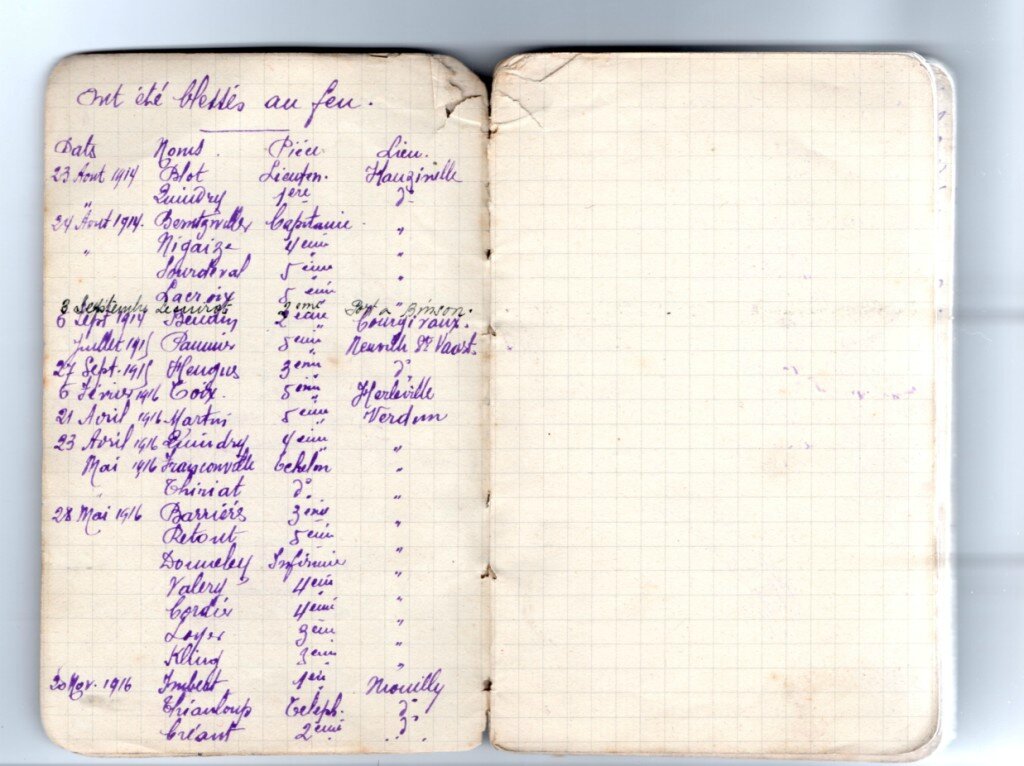 Ont été blessés au feu.
Dates Noms. Pièce Lieu.
23 Aout 1914 Blot Lieuten. Hauzinville
" Quindry 1ère d°
24 Aout 1914. Capitaine "
" Nigaize 4eme "
Sourdeval 5eme "
Lacroix 5eme "
8 Septembre 2eme Port à Binson.
6 Sept 1914 Beudin 2eme Courgivaux.
Juillet 1915 Paumier 5eme Neuville St Vaast.
27 Sept. 1915 3eme d°
6 Février 1916 Toix. 5eme Herleville
21 Avril 1916 Martin 5eme Verdun
23 Avril 1916 Quindry 4eme "
Mai 1916 Franconville Echelon "
" Thiriat d° "
28 Mai 1916 Barriérs 3eme "
Retout 5eme "
Donneley Infirmier "
Valery 4eme "
Cordier 4eme "
Loyer 3eme "
Kling 3eme "
30 Nov. 1916 Imbert 1ere Mouilly
Thianloup Teleph. d°
Créant 2eme d°